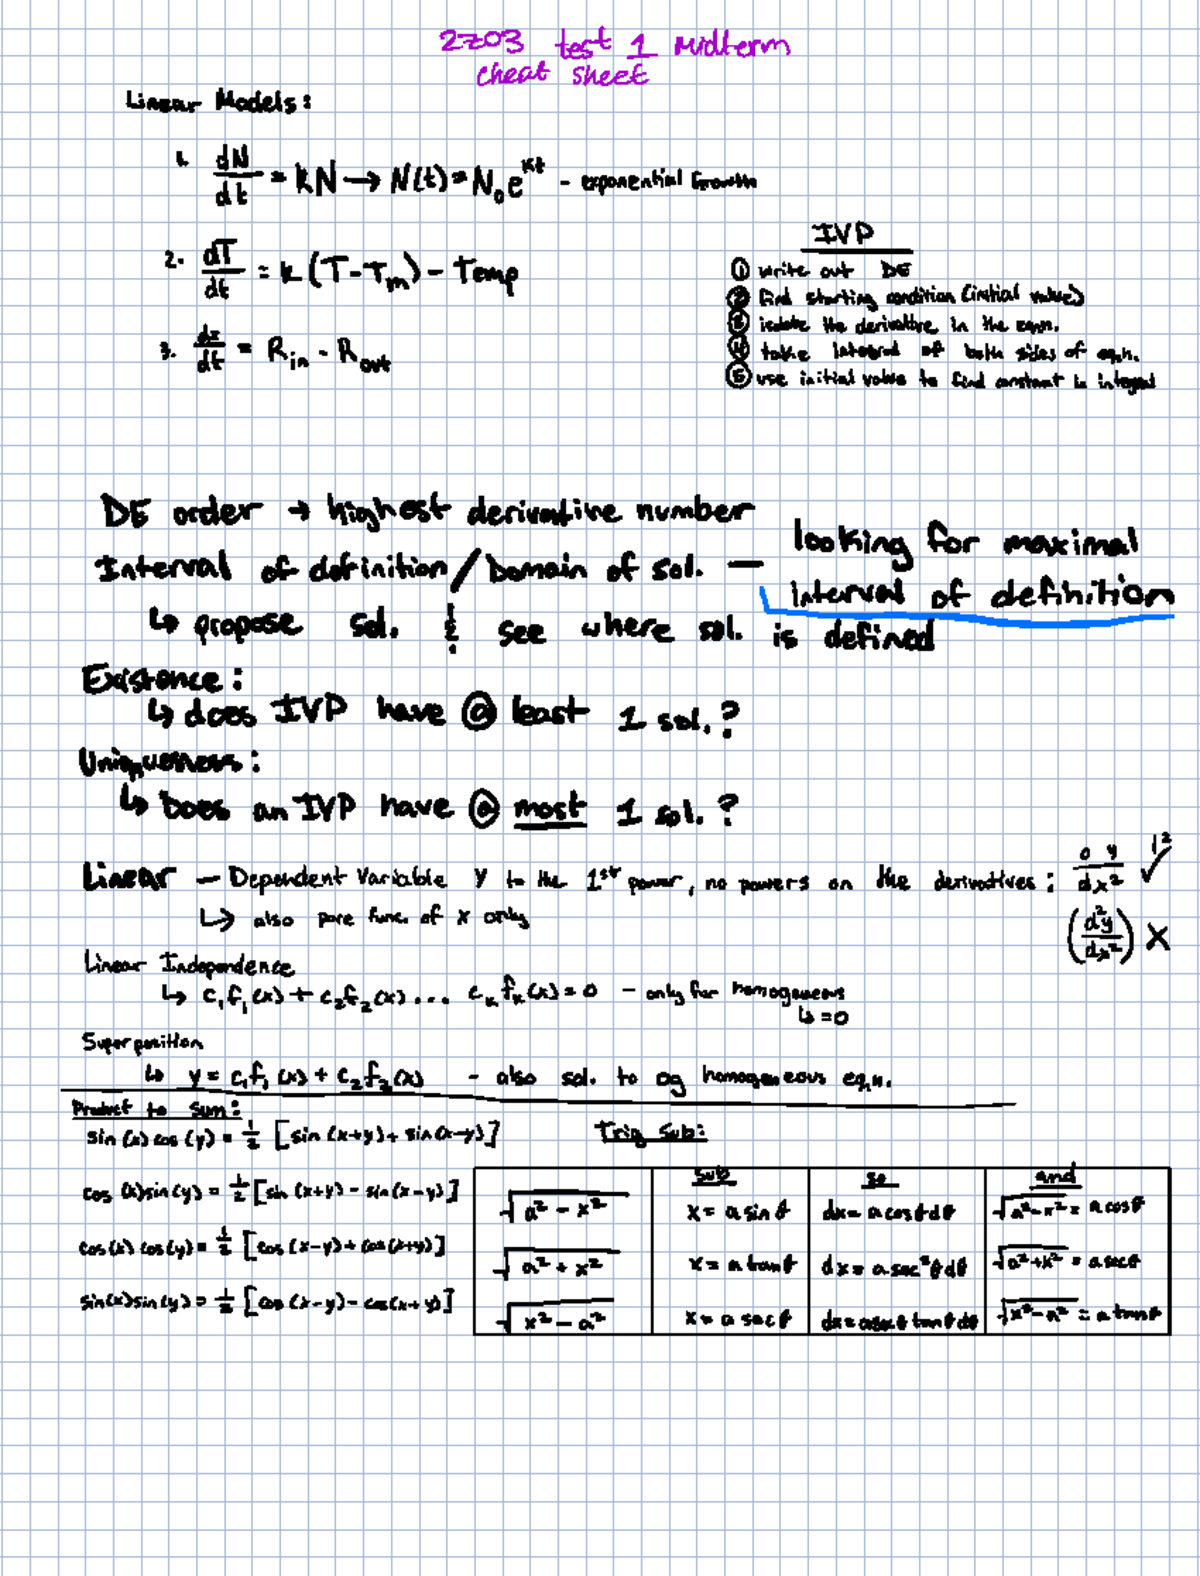 2Z03 test 1 Midterm
cheat sheet
Linear Models:
1. dN/dt = kN → N(t) = N₀e^kt - exponential Growth
2. dT/dt = k(T-Tm) - Temp
3. dx/dt = Rin - Rout
IVP
① write out DE
② find starting condition (initial value)
③ isolate the derivative in the eqn.
④ take integral of both sides of eqn.
⑤ use initial value to find constant in integral
DE order → highest derivative number
Interval of definition/Domain of sol. — looking for maximal
interval of definition
↳ propose sol. & see where sol. is defined
Existence:
↳ does IVP have @ least 1 sol.?
Uniqueness:
↳ Does an IVP have @ most 1 sol.?
Linear — Dependent Variable y to the 1st power, no powers on the derivatives:
↳ also pure func. of x only
(d²y/dx²) X
Linear Independence
↳ c₁f₁(x) + c₂f₂(x)... cₖfₖ(x) = 0 - only for homogeneous
↳ = 0
Superposition
↳ y = c₁f₁(x) + c₂f₂(x) - also sol. to og homogeneous eqn.
Product to Sum:
sin(x)cos(y) = 1/2 [sin(x+y) + sin(x-y)]
cos(x)sin(y) = 1/2 [sin(x+y) - sin(x-y)]
cos(x)cos(y) = 1/2 [cos(x-y) + cos(x+y)]
sin(x)sin(y) = 1/2 [cos(x-y) - cos(x+y)]
Trig Sub:
sub so and
√(a² - x²) x = a sinθ dx = a cosθdθ √(a²-x²) = a cosθ
√(a² + x²) x = a tanθ dx = a sec²θdθ √(a²+x²) = a secθ
√(x² - a²) x = a secθ dx = a secθ tanθdθ √(x²-a²) = a tanθ